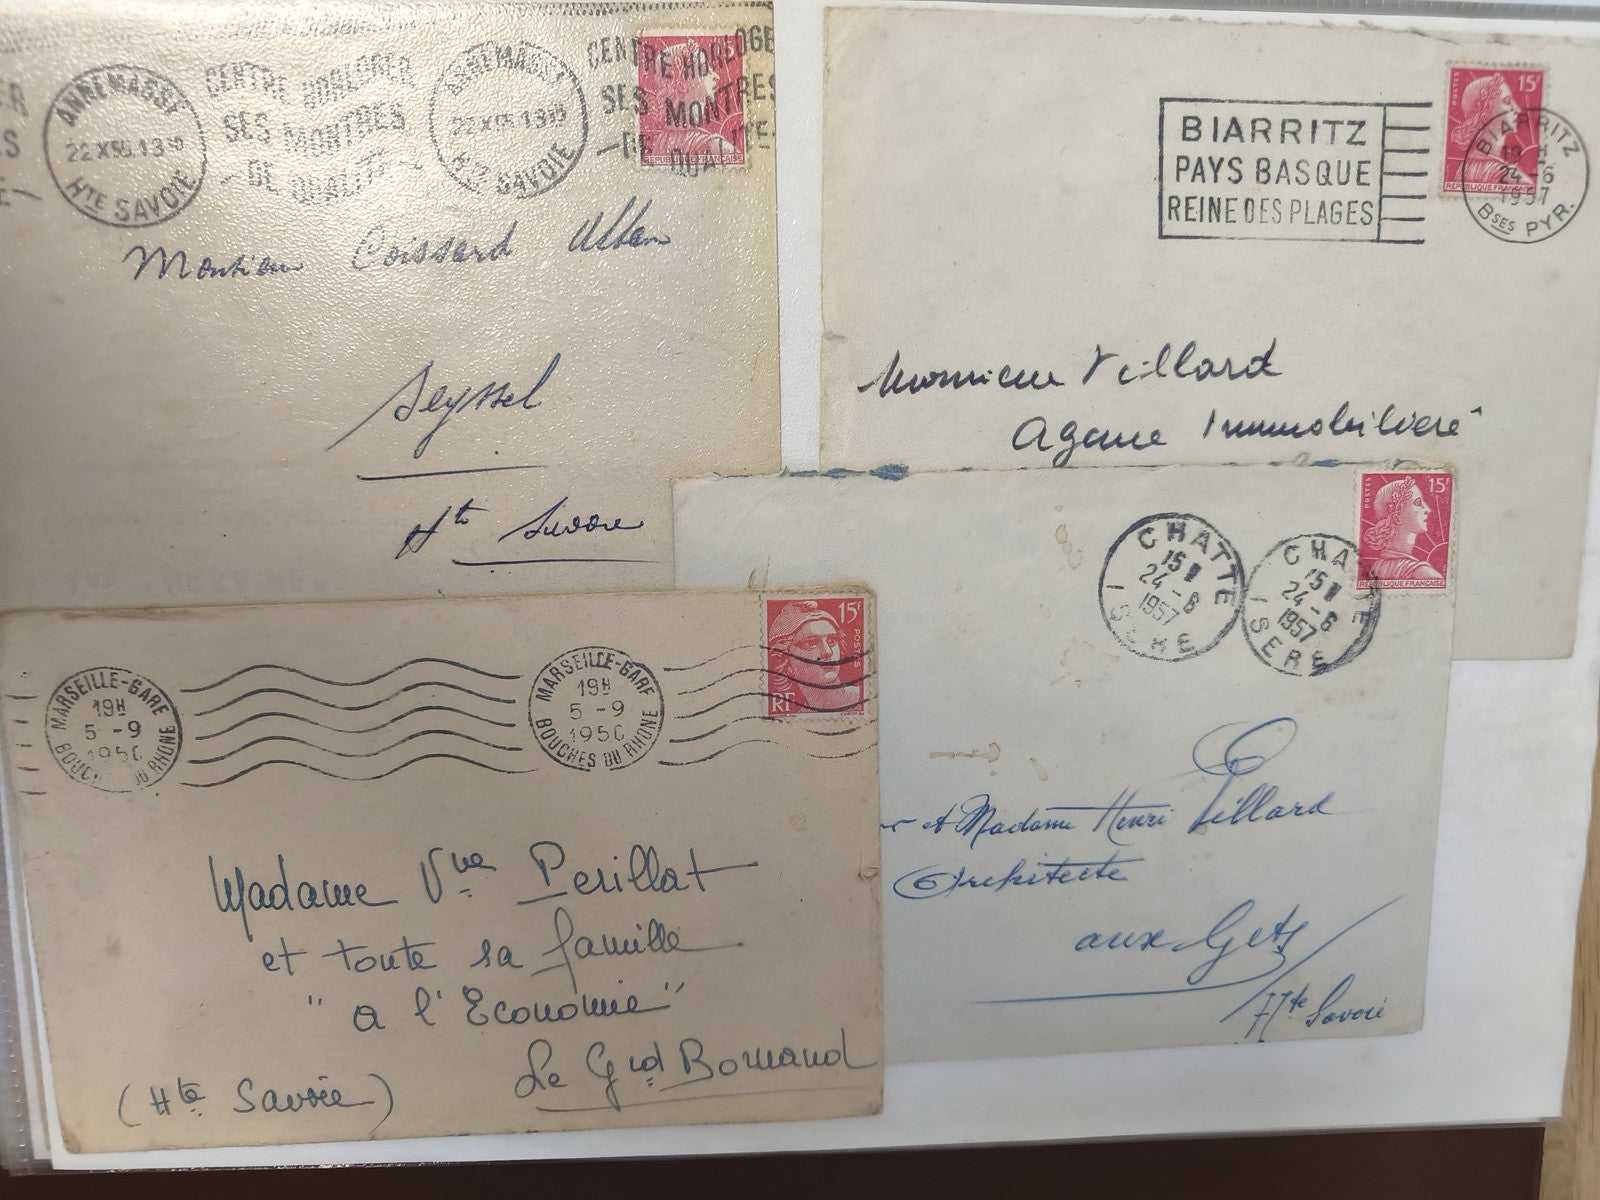 ANNEMASSE
22 X 56.13 30
Hte SAVOIE
CENTRE HORLOGER
SES MONTRES
DE QUALITE
ANNEMASSE
Hte SAVOIE
CENTRE HORLOGE
SES MONTRES
DE QUALITE
REPUBLIQUE FRANÇAISE
Monsieur Coissard
Seyssel
Hte Savoie
BIARRITZ
PAYS BASQUE
REINE DES PLAGES
POSTES 15F
REPUBLIQUE FRANÇAISE
BIARRITZ
19 H
24-6
1957
Bses PYR.
Monsieur Villard
Agence Immobilière
POSTES 15F
REPUBLIQUE FRANÇAISE
CHATTE
15 H
24-6
1957
ISERE
CHATTE
15 H
24-6
1957
ISERE
et Madame Henri Villard
Architecte
aux Gets
Hte Savoie
15F POSTES
RF
MARSEILLE-GARE
19H
5-9
1950
BOUCHES DU RHONE
MARSEILLE-GARE
19H
5-9
1950
BOUCHES DU RHONE
Madame Vve Perillat
et toute sa famille
"a l'Economie"
Le Grd Bornand
(Hte Savoie)